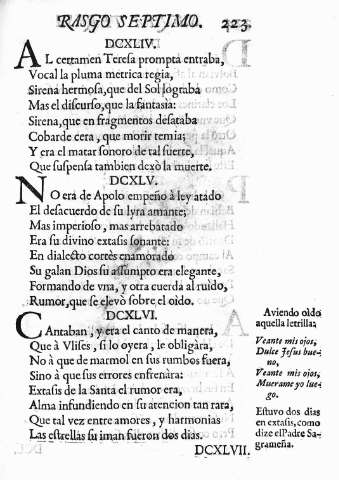 RASGO SEPTIMO. 223.
DCXLIV.
AL certamen Teresa prompta entraba,
Vocal la pluma metrica regia,
Sirena hermosa, que del Sol lograba
Mas el discurso, que la fantasia:
Sirena, que en fragmentos desataba
Cobarde cera, que morir temia;
Y era el matar sonoro de tal suerte,
Que suspensa tambien dexò la muerte.
DCXLV.
NO era de Apolo empeño à ley atado
El desacuerdo de su lyra amante;
Mas imperioso, mas arrebatado
Era su divino extasis sonante:
En dialecto cortès enamorado
Su galan Dios su assumpto era elegante,
Formando de vna, y otra cuerda al ruìdo,
Rumor, que se elevò sobre el oìdo.
DCXLVI.
CAntaban, y era el canto de manera,
Que à Vlises, si lo oyera, le obligàra,
No à que de marmol en sus rumbos fuera,
Sino à que sus errores enfrenàra:
Extasis de la Santa el rumor era,
Alma infundiendo en su atencion tan rara,
Que tal vez entre amores, y harmonias
Las estrellas su iman fueron dos dias.
Aviendo oìdo
aquella letrilla;
Veante mis ojos,
Dulce Jesus bue-
no,
Veante mis ojos,
Muerame yo lue-
go.
Estuvo dos dias
en extasis, como
dize el Padre Sa-
grameña.
DCXLVII.